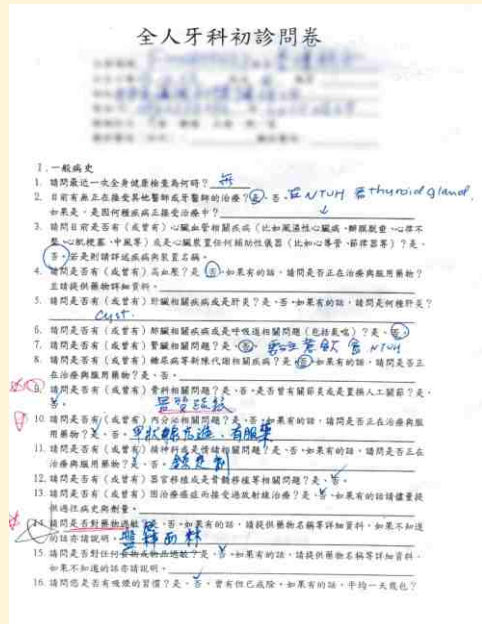 全人牙科初診問卷
I. 一般病史
1. 請問最近一次全身健康檢查為何時？ 無
2. 目前有無正在接受其他醫師或牙醫師的治療？是、否。在NTUH 看thyroid gland.
如果是，是因何種疾病正接受治療中？
3. 請問目前是否有（或曾有）心臟血管相關疾病（比如風濕性心臟病、瓣膜脫垂、心律不
整、心肌梗塞、中風等）或是心臟裝置任何輔助性儀器（比如心導管、節律器等）？是、
否。若是則請詳述疾病與裝置名稱。
4. 請問是否有（或曾有）高血壓？是、否。如果有的話，請問是否正在治療與服用藥物？
並請提供藥物詳細資料。
5. 請問是否有（或曾有）肝臟相關疾病或是肝炎？是、否。如果有的話，請問是何種肝炎？
cyst.
6. 請問是否有（或曾有）肺臟相關疾病或是呼吸道相關問題（包括氣喘）？是、否。
7. 請問是否有（或曾有）腎臟相關問題？是、否。 NTUH
8. 請問是否有（或曾有）糖尿病等新陳代謝相關疾病？是、否。如果有的話，請問是否正
在治療與服用藥物？是、否。
9. 請問是否有（或曾有）骨科相關問題？是、否。是否曾有關節炎或是置換人工關節？是、
否。 骨質疏鬆
10. 請問是否有（或曾有）內分泌相關問題？是、否。如果有的話，請問是否正在治療與服
用藥物？是、否。甲狀腺亢進，有服藥
11. 請問是否有（或曾有）精神科或是情緒相關問題？是、否。如果有的話，請問是否正在
治療與服用藥物？是、否。 鎮定劑
12. 請問是否有（或曾有）器官移植或是骨髓移植等相關問題？是、否。
13. 請問是否有（或曾有）因治療癌症而接受過放射線治療？是、否。如果有的話請儘量提
供過往病史與劑量。
14. 請問是否對藥物過敏？是、否。如果有的話，請提供藥物名稱等詳細資料。如果不知道
的話亦請說明。盤尼西林
15. 請問是否對任何食物或物品過敏？是、否。如果有的話，請提供名稱等詳細資料。
如果不知道的話亦請說明。
16. 請問您是否有吸煙的習慣？是、否、曾有但已戒除。如果有的話，平均一天幾包？